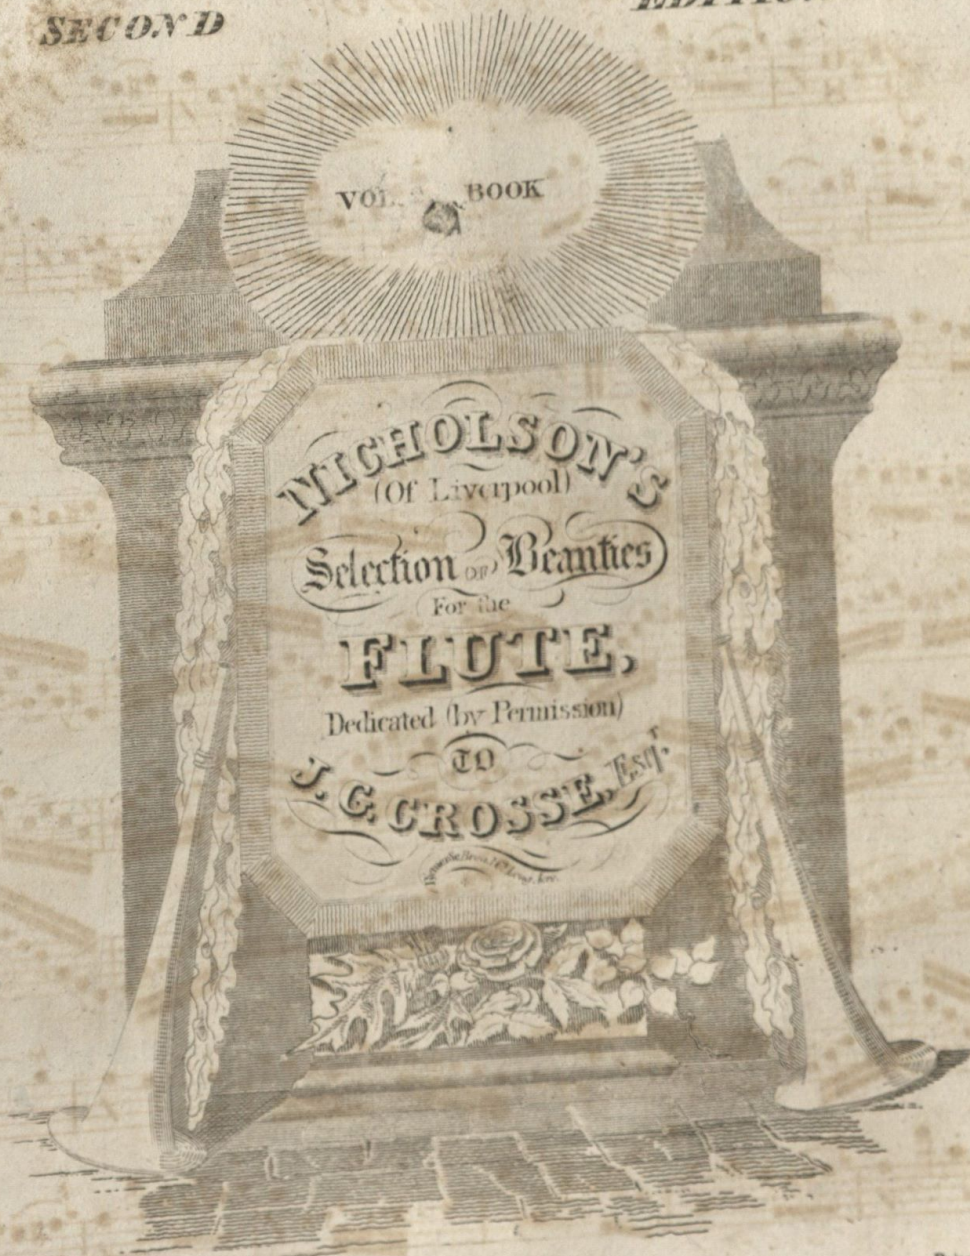 SECOND EDITION
VOL. BOOK
NICHOLSON'S
(Of Liverpool)
Selection OF Beauties
For the
FLUTE,
Dedicated (by Permission)
TO
J. G. CROSSE, Esqr.